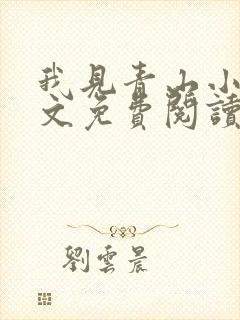 我見青山小
文免費閱讀
劉雲晨